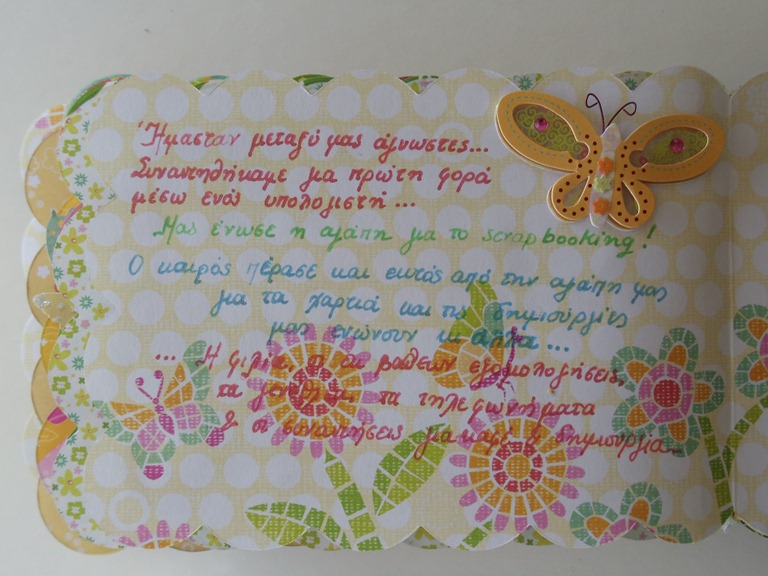 Ήμασταν μεταξύ μας άγνωστες...
Συναντηθήκαμε μια πρώτη φορά
μέσω ενός υπολογιστή...
Μας ένωσε η αγάπη για το scrapbooking!
Ο καιρός πέρασε και εκτός από την αγάπη μας
για τα χαρτιά και τις δημιουργίες
μας ενώνουν κι άλλα...
... Η φιλία, οι εκ βαθέων εξομολογήσεις,
τα γενέθλια, τα τηλεφωνήματα
& οι συναντήσεις για καφέ & δημιουργία